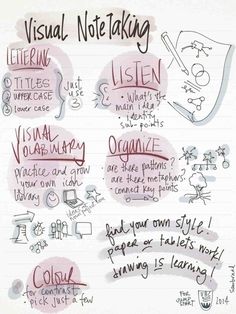 VISUAL NOTETAKING
LETTERING
1 TITLES
2 UPPER CASE
3 lower case
just
use
3
LISTEN
• What's the
main idea?
• identify
sub-points
VISUAL
VOCABULARY
practice and grow
your own icon
library
ORGANIZE
are there patterns?
are there metaphors?
connect key points
find your own style!
paper or tablets work!
drawing IS learning!
Colour
• for contrast
• pick just a few
FOR
2014